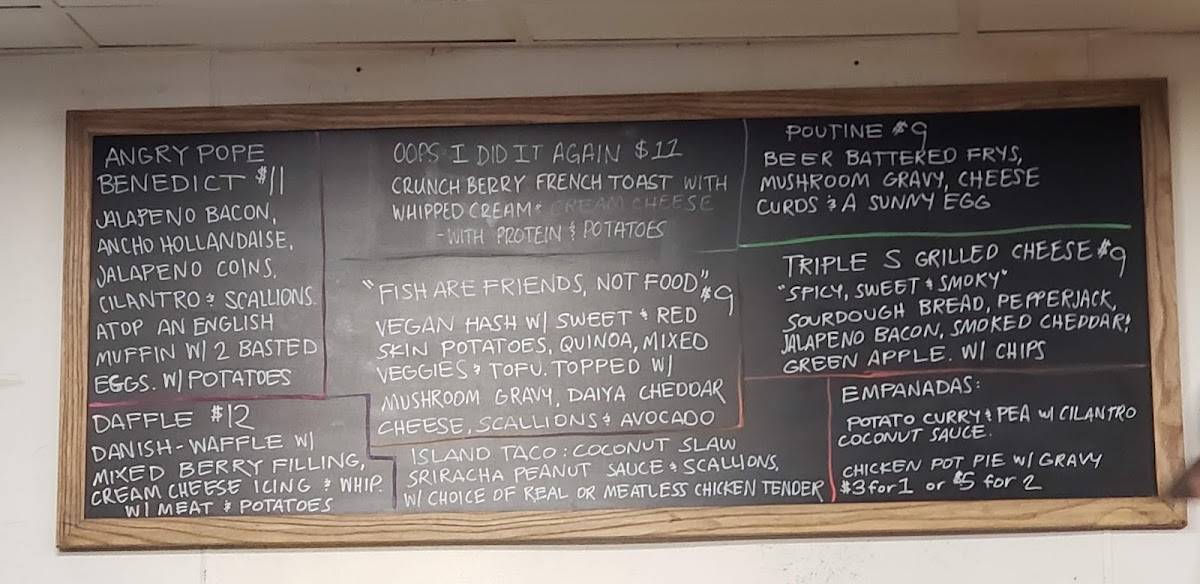 ANGRY POPE
BENEDICT $11
JALAPENO BACON,
ANCHO HOLLANDAISE,
JALAPENO COINS,
CILANTRO & SCALLIONS.
ATOP AN ENGLISH
MUFFIN W/ 2 BASTED
EGGS. W/ POTATOES
DAFFLE $12
DANISH-WAFFLE W/
MIXED BERRY FILLING,
CREAM CHEESE ICING & WHIP.
W/ MEAT & POTATOES
OOPS I DID IT AGAIN $11
CRUNCH BERRY FRENCH TOAST WITH
WHIPPED CREAM & CREAM CHEESE
-WITH PROTEIN & POTATOES
"FISH ARE FRIENDS, NOT FOOD" $9
VEGAN HASH W/ SWEET & RED
SKIN POTATOES, QUINOA, MIXED
VEGGIES & TOFU. TOPPED W/
MUSHROOM GRAVY, DAIYA CHEDDAR
CHEESE, SCALLIONS & AVOCADO
ISLAND TACO: COCONUT SLAW
SRIRACHA PEANUT SAUCE & SCALLIONS,
W/ CHOICE OF REAL OR MEATLESS CHICKEN TENDER
POUTINE $9
BEER BATTERED FRYS,
MUSHROOM GRAVY, CHEESE
CURDS & A SUNNY EGG
TRIPLE S GRILLED CHEESE $9
"SPICY, SWEET & SMOKY"
SOURDOUGH BREAD, PEPPERJACK,
JALAPENO BACON, SMOKED CHEDDAR &
GREEN APPLE. W/ CHIPS
EMPANADAS:
POTATO CURRY & PEA W/ CILANTRO
COCONUT SAUCE.
CHICKEN POT PIE W/ GRAVY
$3 for 1 or $5 for 2